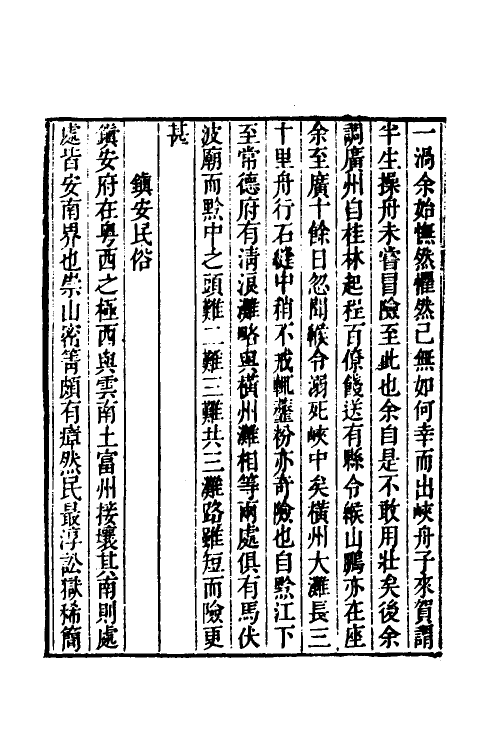 一渦余始憮然懼然已無如何幸而出峽舟子來賀謂
半生操舟未嘗冒險至此也余自是不敢用壯矣後余
調廣州自桂林起程百僚餞送有縣令緱山鵬亦在座
余至廣十餘日忽聞緱令溺死峽中矣橫州大灘長三
十里舟行石縫中稍不戒輒虀粉亦奇險也自黔江下
至常德府有清浪灘略與橫州灘相等兩處俱有馬伏
波廟而黔中之頭難二難三難共三灘路雖短而險更
甚
鎮安民俗
鎮安府在粤西之極西與雲南土富州接壤其南則處
處皆安南界也崇山密箐頗有瘴然民最淳訟獄稀簡